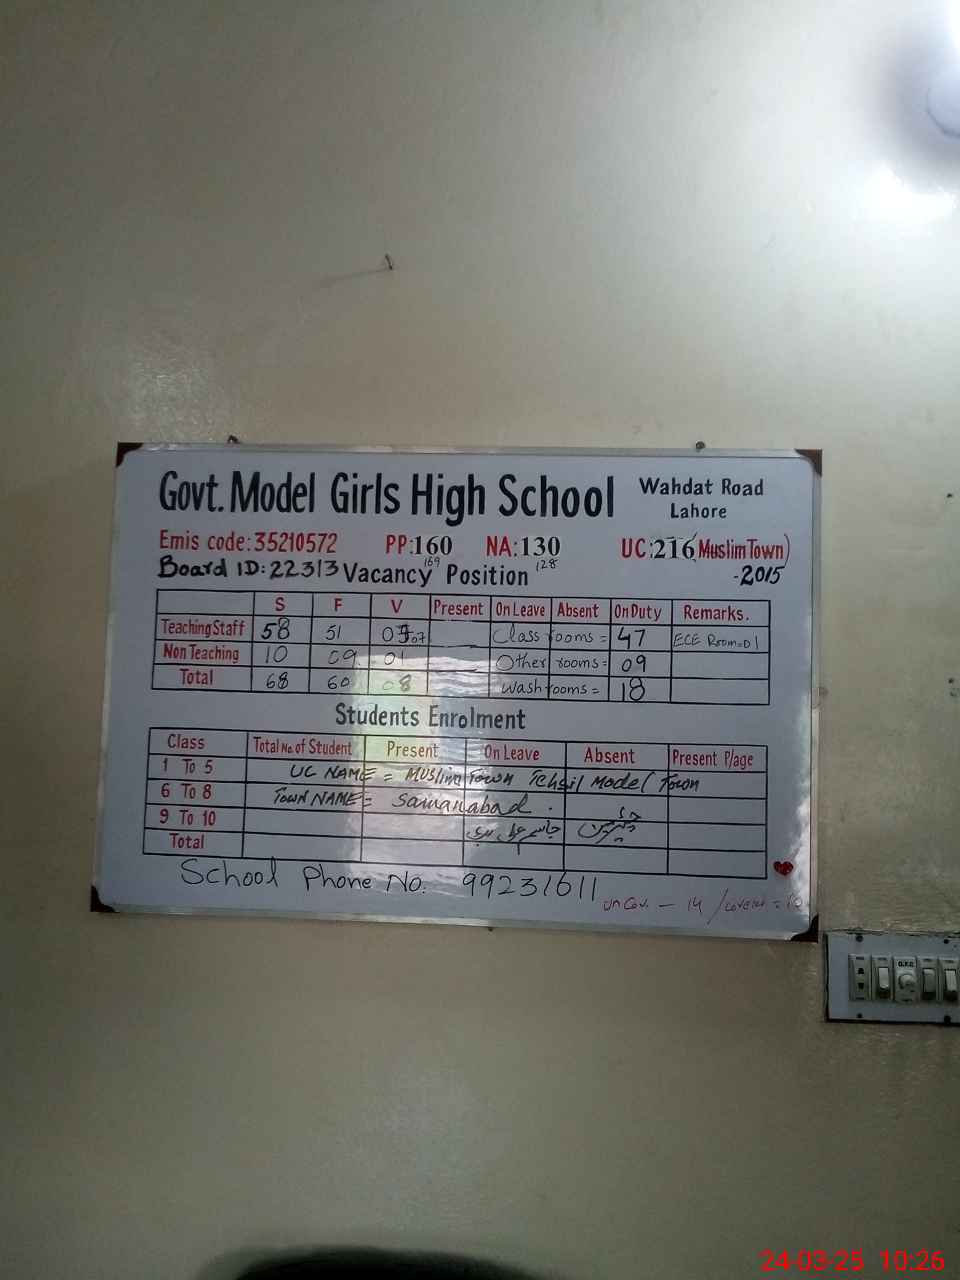 Govt. Model Girls High School Wahdat Road
Lahore
Emis code: 35210572 PP:160 NA:130 UC:216 Muslim Town)
169 128
Board ID: 22313 Vacancy Position -2015
S F V Present On Leave Absent On Duty Remarks.
Teaching Staff 58 51 07 Class rooms = 47 ECE Room=01
Non Teaching 10 09 01 Other rooms = 09
Total 68 60 08 Wash rooms = 18
Students Enrolment
Class Total No. of Student Present On Leave Absent Present P/age
1 To 5 UC NAME = Muslim Town Tehsil Model Town
6 To 8 TOWN NAME = Samanabad .
9 To 10
Total
School Phone No. 99231611
Un Cov. - 14 /
G.F.C
24-03-25 10:26